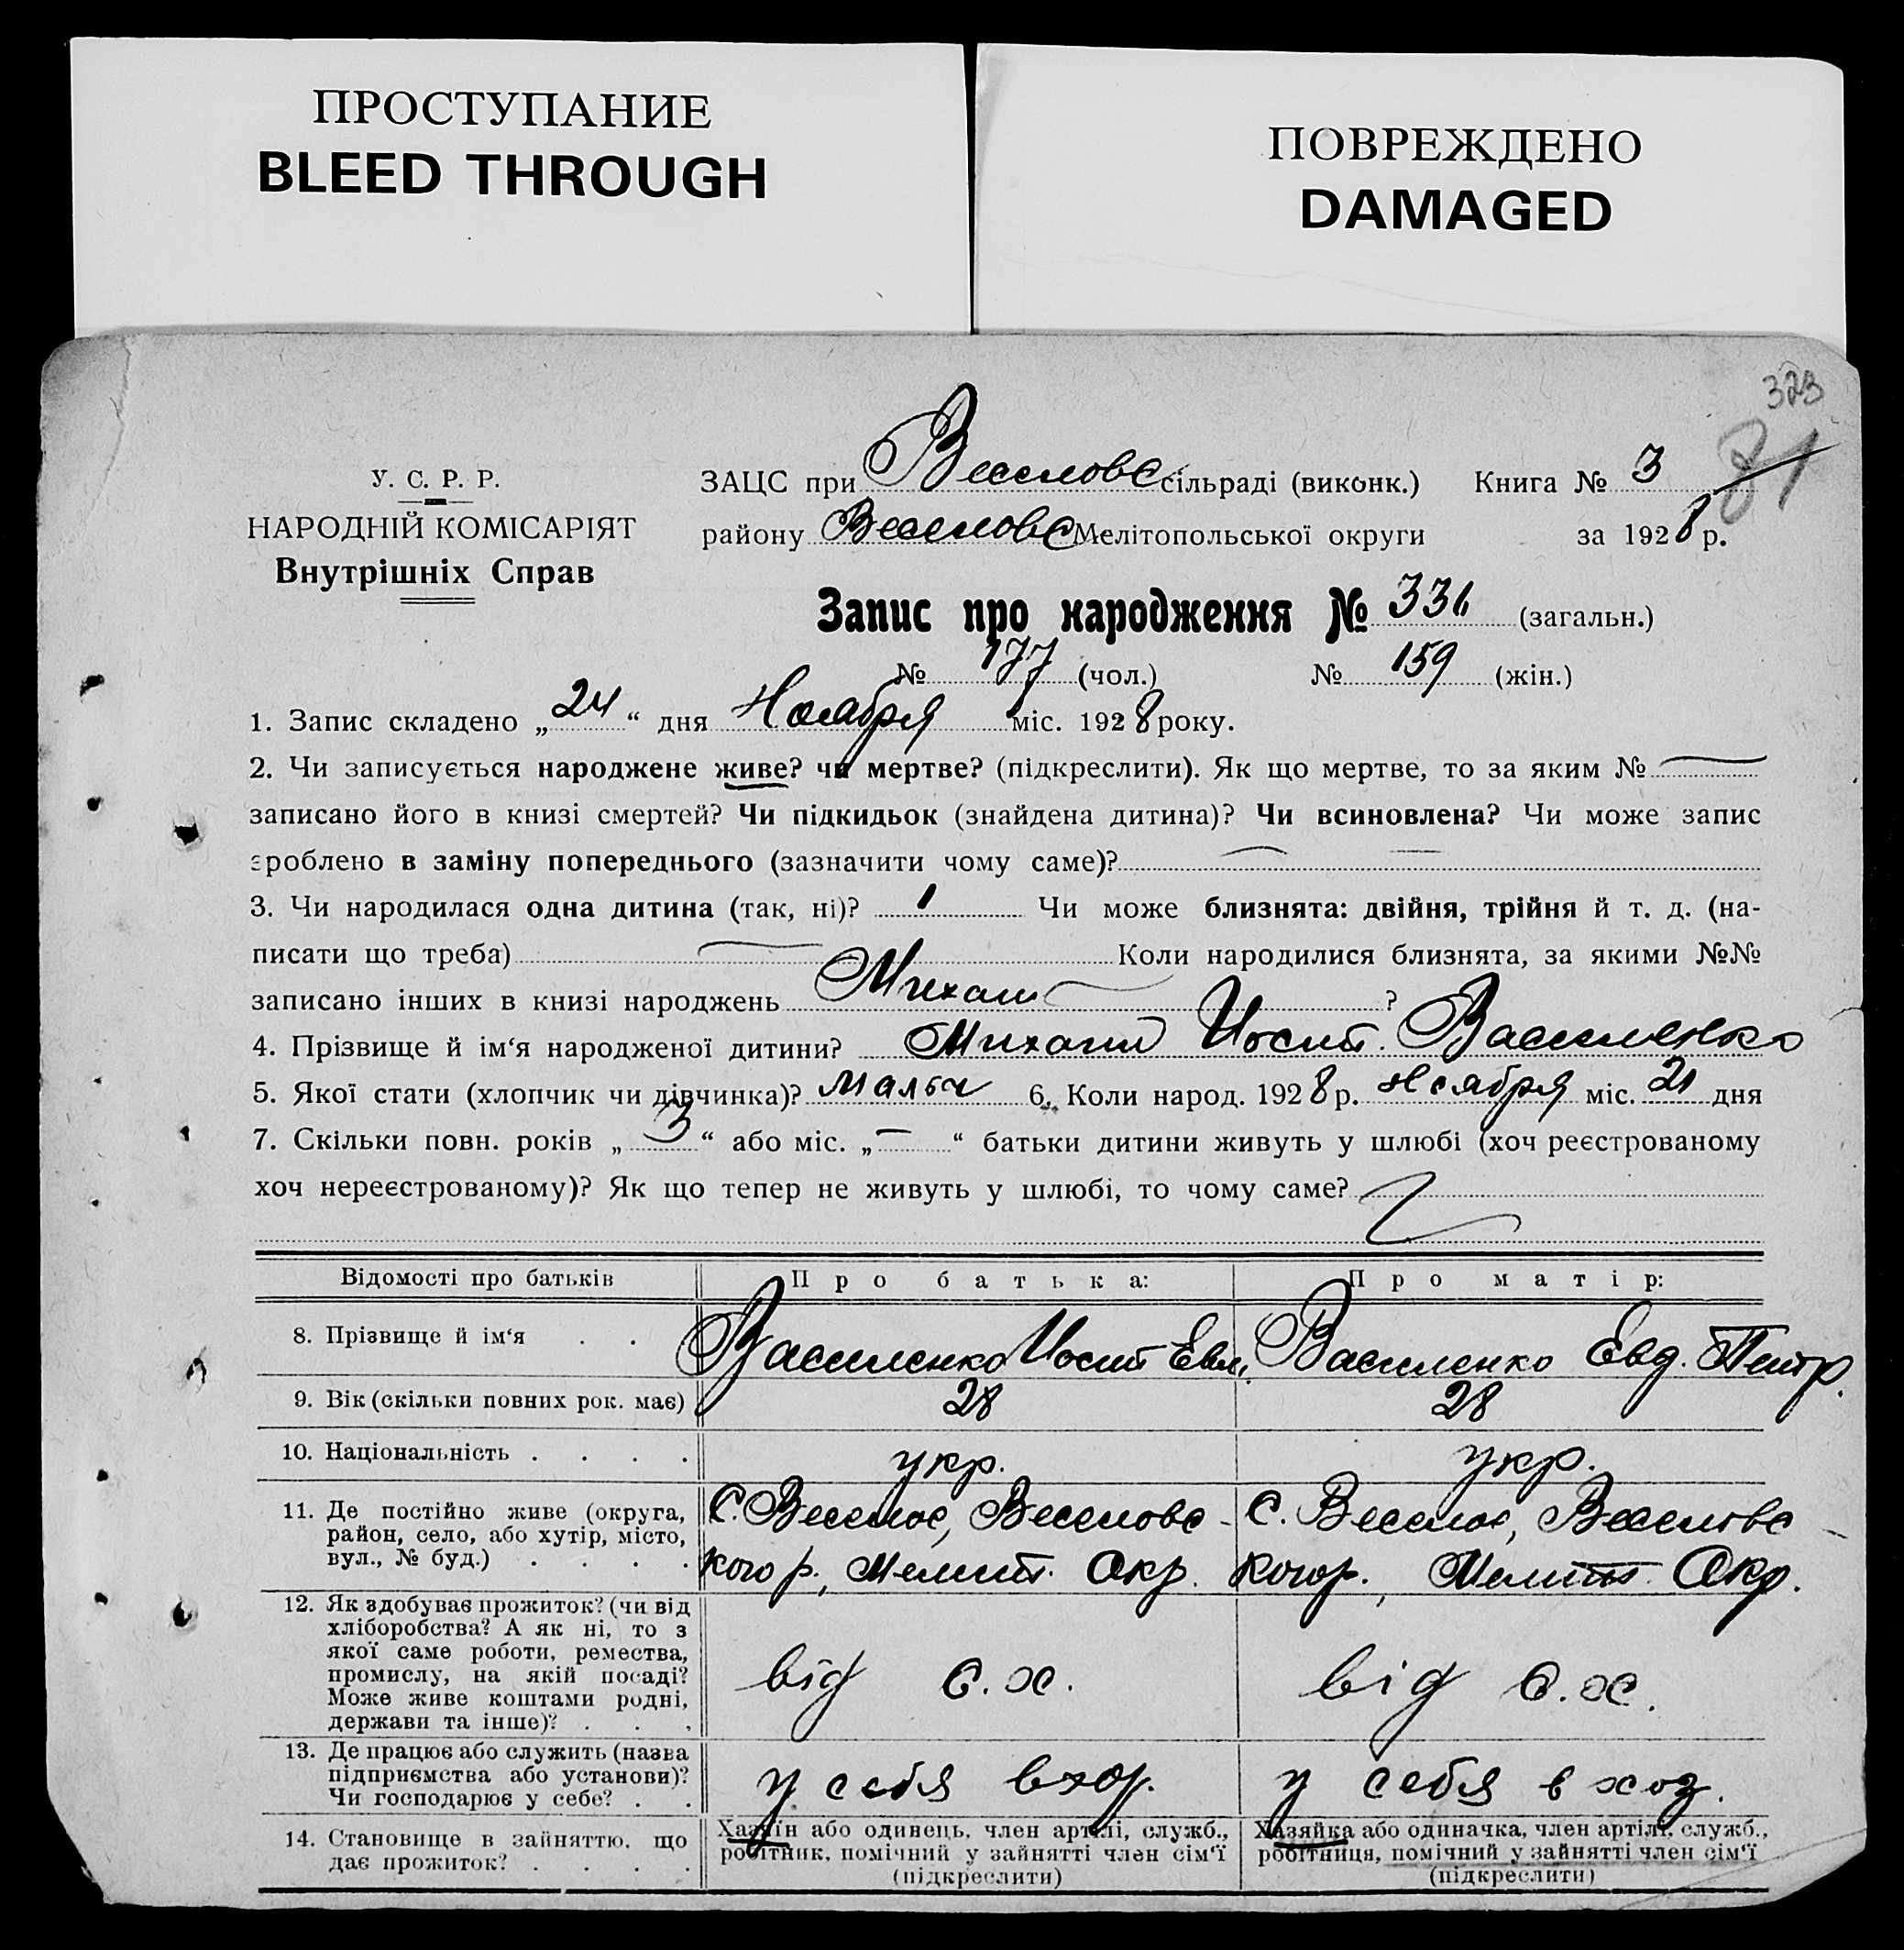 ПРОСТУПАНИЕ
BLEED THROUGH
ПОВРЕЖДЕНО
DAMAGED
323
81
У. С. Р. Р.
НАРОДНІЙ КОМІСАРІЯТ
Внутрішніх Справ
ЗАЦС при Веселовс сільраді (виконк.) Книга № 3
району Веселовс Мелітопольської округи за 1928 р.
Запис про народження № 336 (загальн.)
№ 177 (чол.) № 159 (жін.)
1. Запис складено „24“ дня Ноября міс. 1928 року.
2. Чи записується народжене живе? чи мертве? (підкреслити). Як що мертве, то за яким №
записано його в книзі смертей? Чи підкидьок (знайдена дитина)? Чи всиновлена? Чи може запис
зроблено в заміну попереднього (зазначити чому саме)?
3. Чи народилася одна дитина (так, ні)? 1 Чи може близнята: двійня, трійня й т. д. (на-
писати що треба) Коли народилися близнята, за якими №№
записано інших в книзі народжень Михаил ?
4. Прізвище й ім‘я народженої дитини? Михаил Иосип. Василенко
5. Якої стати (хлопчик чи дівчинка)? мальч 6. Коли народ. 1928 р. Ноября міс. 21 дня
7. Скільки повн. років „3“ або міс. „—“ батьки дитини живуть у шлюбі (хоч реєстрованому
хоч нереєстрованому)? Як що тепер не живуть у шлюбі, то чому саме?
Відомості про батьків Про батька: Про матір:
8. Прізвище й ім‘я . . Василенко Иосип Евл. Василенко Евд. Петр.
9. Вік (скільки повних рок. має) 28 28
10. Національність . . . . укр. укр.
11. Де постійно живе (округа, С. Веселое, Веселовс- С. Веселое, Веселовс-
район, село, або хутір, місто,
вул., № буд.) . . . . кого р., Мелит. Окр. кого р., Мелит. Окр.
12. Як здобуває прожиток? (чи від
хліборобства? А як ні, то з
якої саме роботи, ремества,
промислу, на якій посаді? від с.х. від с.х.
Може живе коштами родні,
держави та інше)? . . .
13. Де працює або служить (назва
підприємства або установи)? у себя в хоз. у себя в хоз.
Чи господарює у себе? . .
14. Становище в зайняттю, що Хазяїн або одинець, член артілі, служб., Хазяйка або одиначка, член артілі, служб.,
дає прожиток? . . . . робітник, помічний у зайнятті член сім‘ї робітниця, помічний у зайнятті член сім‘ї
(підкреслити) (підкреслити)